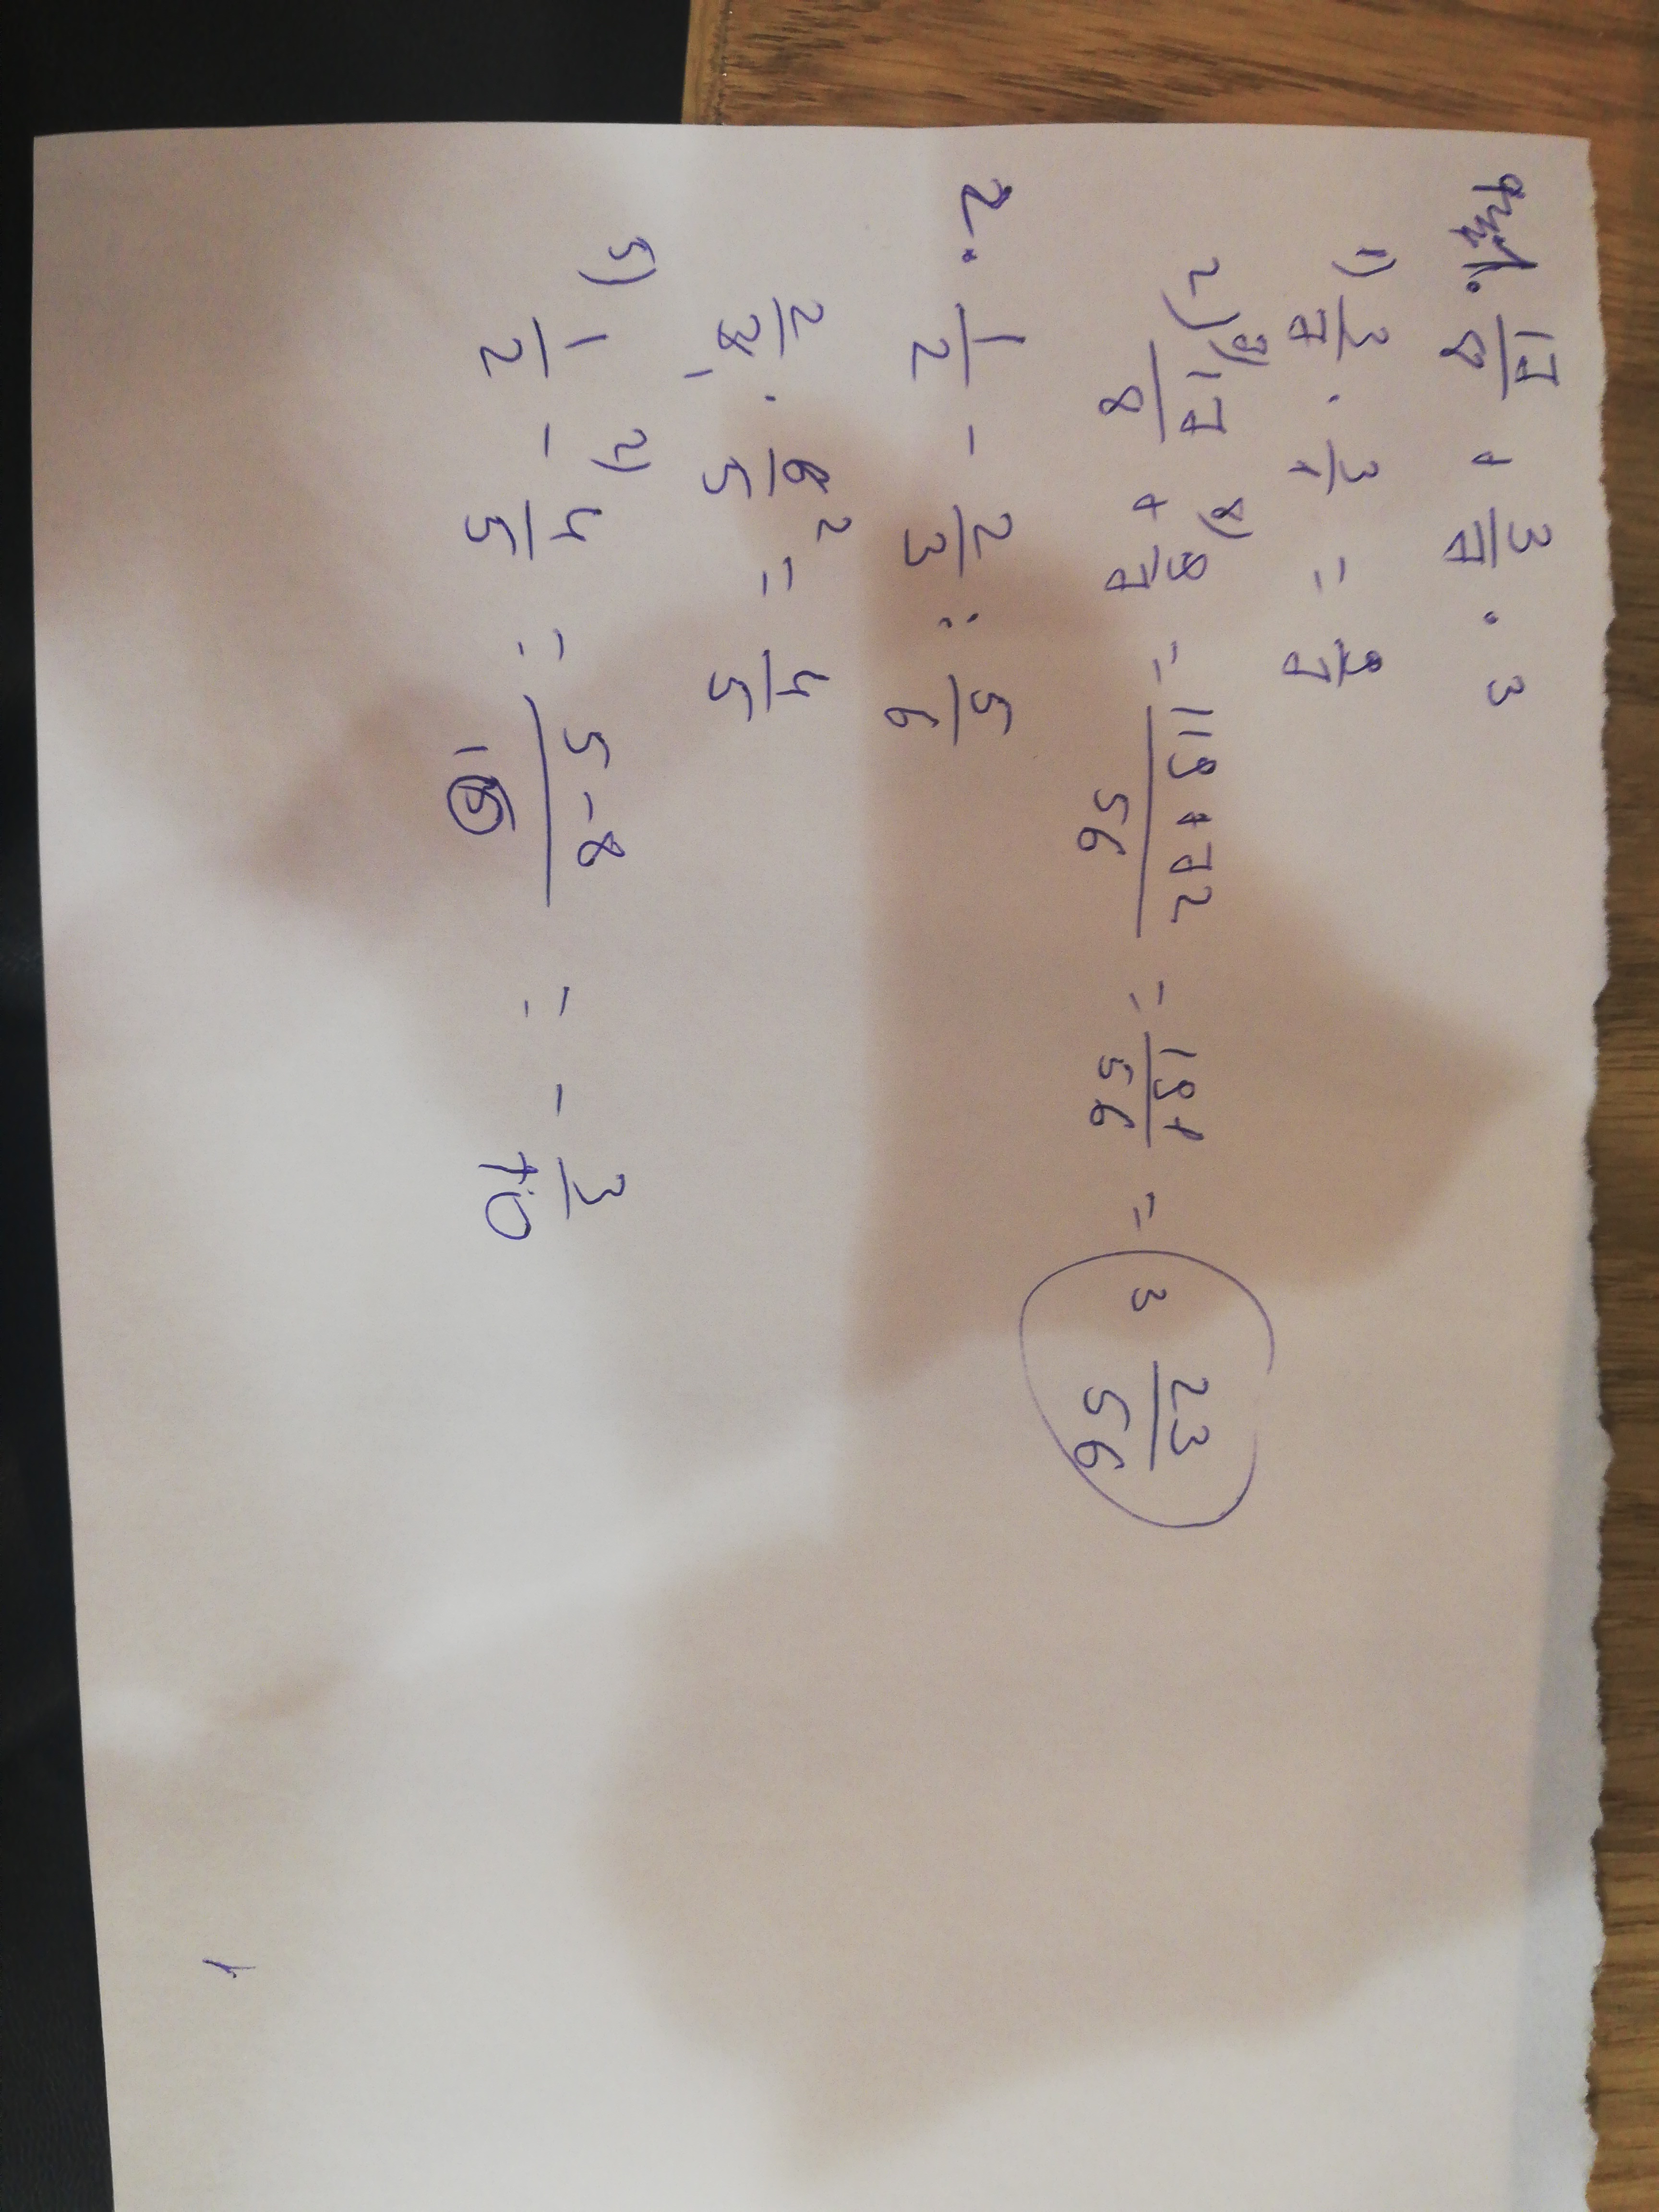 1. 17/8 + 3/7 · 3
1) 3/7 · 3/1 = 9/7
2) 7) 17/8 + 8) 9/7 = 119+72/56 = 191/56 = 3 23/56
2. 1/2 - 2/3 : 5/6
2/3 1 · 6/5 2 = 4/5
5) 1/2 - 2) 4/5 = 5-8/10 = - 3/10